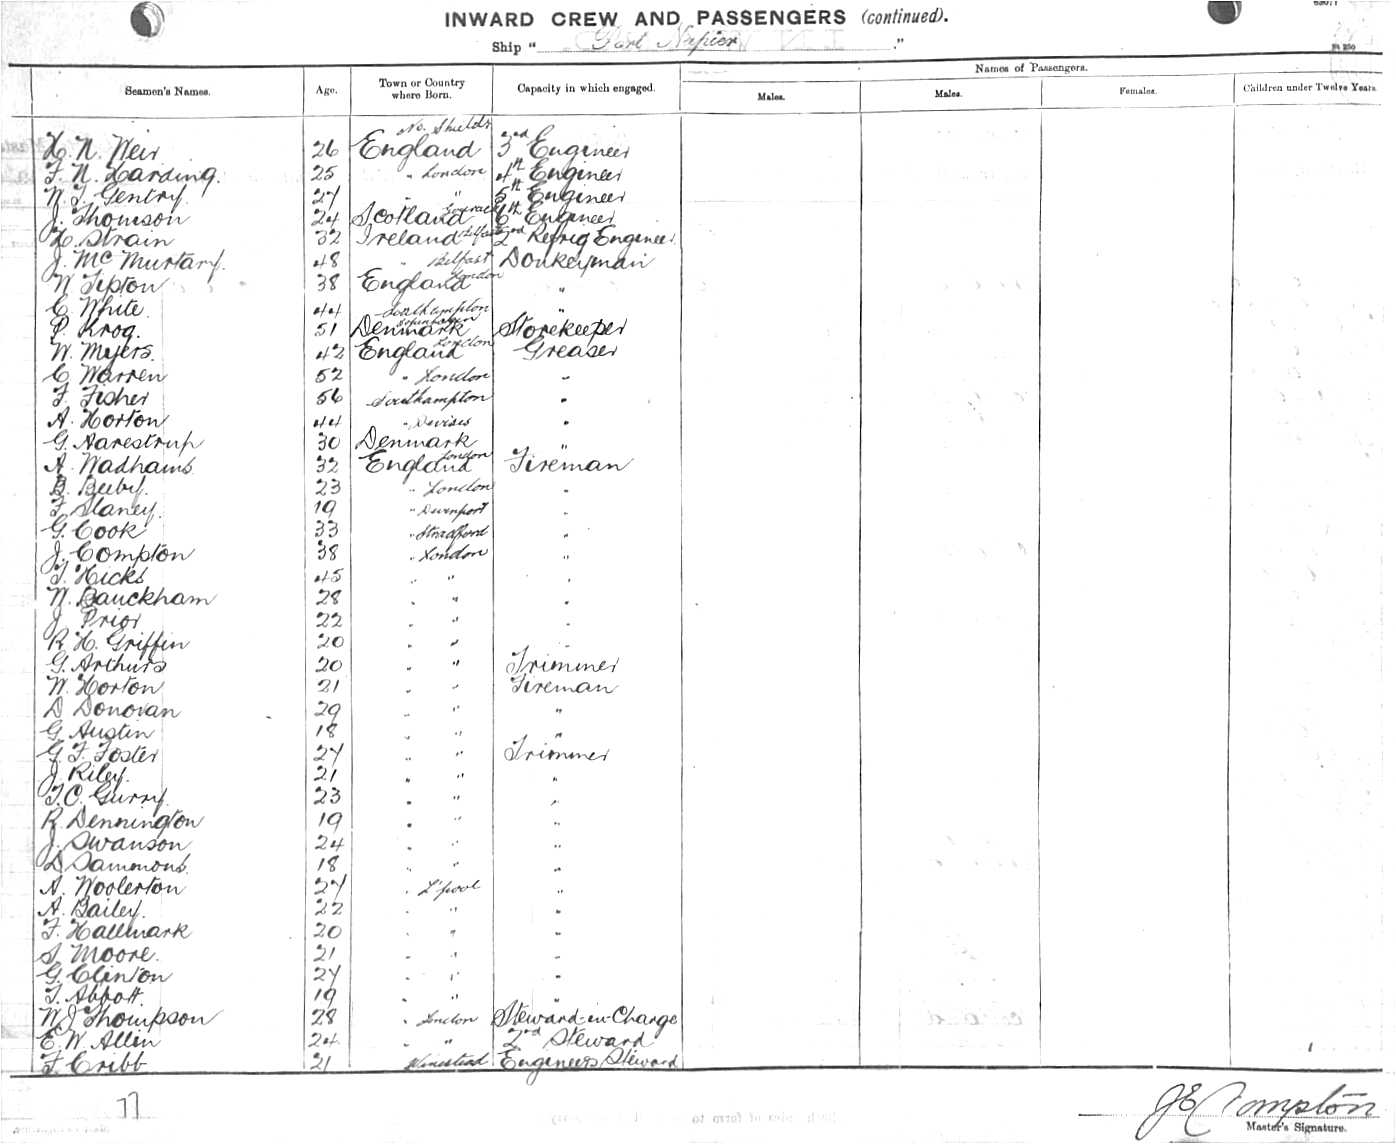 INWARD CREW AND PASSENGERS (continued).
Ship " Port Napier ."
Names of Passengers.
Seamen's Names. Age. Town or Country where Born. Capacity in which engaged. Males. Males. Females. Children under Twelve Years.
H. N. Weir 26 No. Shields England 3rd Engineer
F. N. Harding. 25 " London 4th Engineer
W. T. Gentry. 27 " " 5th Engineer
J. Thomson 24 Scotland 6th Engineer
H. Strain 32 Ireland Belfast 2nd Refrig Engineer
J. Mc Murtary. 48 " Belfast Donkeyman
W Tipton 38 England London "
C. White. 44 Southampton "
P. Krog. 51 Denmark Copenhagen Storekeeper
W. Myers. 42 England London Greaser
C. Warren 52 " London "
F. Fisher 56 Southampton "
A. Horton 44 " Devises "
G. Aarestrup 30 Denmark "
A. Wadhams 32 England London Fireman
B. Beeby. 23 " London "
F. Slaney. 19 " Devenport "
G. Cook 33 " Stratford "
J. Compton 38 " London "
T. Hicks 45 " " "
W. Bauckham 28 " " "
J. Prior 22 " " "
R. H. Griffin 20 " " "
G. Arthurs 20 " " Trimmer
W. Horton 21 " " Fireman
D Donovan 29 " " "
G. Austin 18 " " "
G. F. Foster 27 " " Trimmer
J. Riley. 21 " " "
T. C. Gurry. 23 " " "
R. Dennington 19 " " "
J. Swanson 24 " " "
D Sammons. 18 " " "
A. Woolerton 27 " L'pool "
A. Bailey. 22 " " "
F. Hallmark 20 " " "
S. Moore. 21 " " "
G. Clinton 27 " " "
T. Abbott. 19 " " "
W J Thompson 28 " London Steward-in-Charge
E. W. Allen 24 " " 2nd Steward
F. Cribb 21 Winestead Engineers Steward
77
J E Compton
Master's Signature.